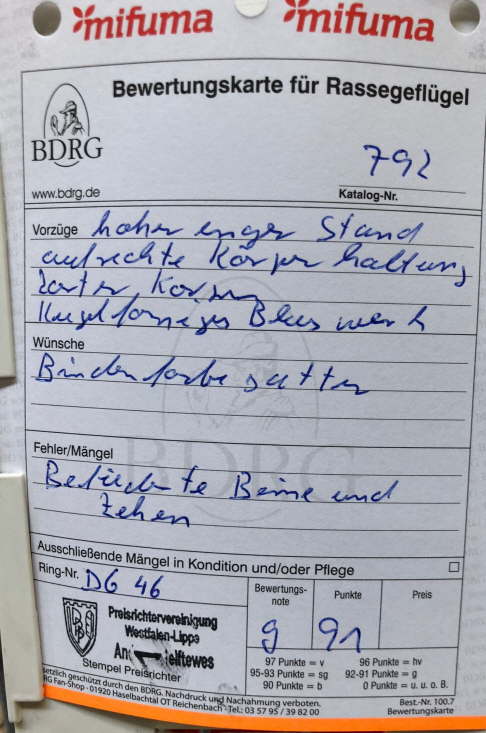 mifuma mifuma
Bewertungskarte für Rassegeflügel
BDRG
792
www.bdrg.de
Katalog-Nr.
Vorzüge hoher enger Stand
aufrechte Körperhaltung
zarter Körper
Kugelförmiges Blaswerk
Wünsche
Bindenfarbe satter
BDRG
Fehler/Mängel
Befiederte Beine und
Zehen
Ausschließende Mängel in Kondition und/oder Pflege
Ring-Nr. DG 46
Bewertungs-
note
Punkte
Preis
g 91
Preisrichtervereinigung
Westfalen-Lippe
Stempel Preisrichter
97 Punkte = v 96 Punkte = hv
95-93 Punkte = sg 92-91 Punkte = g
90 Punkte = b 0 Punkte = u. u. o. B.
setzlich geschützt durch den BDRG. Nachdruck und Nachahmung verboten.
RG Fan-Shop · 01920 Haselbachtal OT Reichenbach · Tel.: 03 57 95 / 39 82 00
Best.-Nr. 100.7
Bewertungskarte